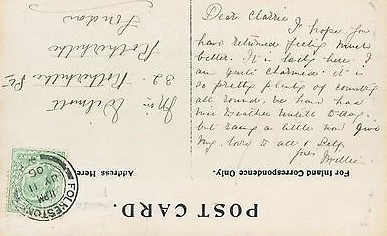 Dear Clarrie
I hope you
have returned feeling much
better. It is lovely here. I
am quite charmed. it is
so pretty plenty of country
all round. we have had
nice weather until to-day.
but rainy a little now Give
my love to all & Self.
from
Millie
For Inland Correspondence Only.
Miss Welnott
32 Rotherhithe St
Rotherhithe
London
Address Here
POST CARD.
FOLKESTONE
11 PM
06